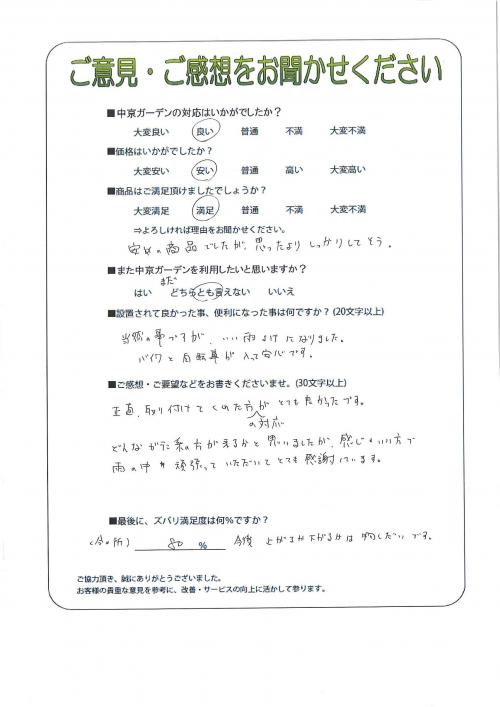 ご意見・ご感想をお聞かせください
■中京ガーデンの対応はいかがでしたか？
大変良い 良い 普通 不満 大変不満
■価格はいかがでしたか？
大変安い 安い 普通 高い 大変高い
■商品はご満足頂けましたでしょうか？
大変満足 満足 普通 不満 大変不満
⇒よろしければ理由をお聞かせください。
安めの商品でしたが、思ったよりしっかりしてそう。
■また中京ガーデンを利用したいと思いますか？
まだ
はい どちらとも言えない いいえ
■設置されて良かった事、便利になった事は何ですか？(20文字以上)
当然の事ですが、いい雨よけになりました。
バイクと自転車が入って安心です。
■ご感想・ご要望などをお書きくださいませ。(30文字以上)
正直、取り付けてくれた方がとても良かったです。
の対応
どんなガテン系の方が来るかと思いましたが、感じのいい方で
雨の中頑張っていただいてとても感謝しています。
■最後に、ズバリ満足度は何％ですか？
(今の所) 80 % 今後 上がるか下がるかは 次第です。
ご協力頂き、誠にありがとうございました。
お客様の貴重な意見を参考に、改善・サービスの向上に活かして参ります。